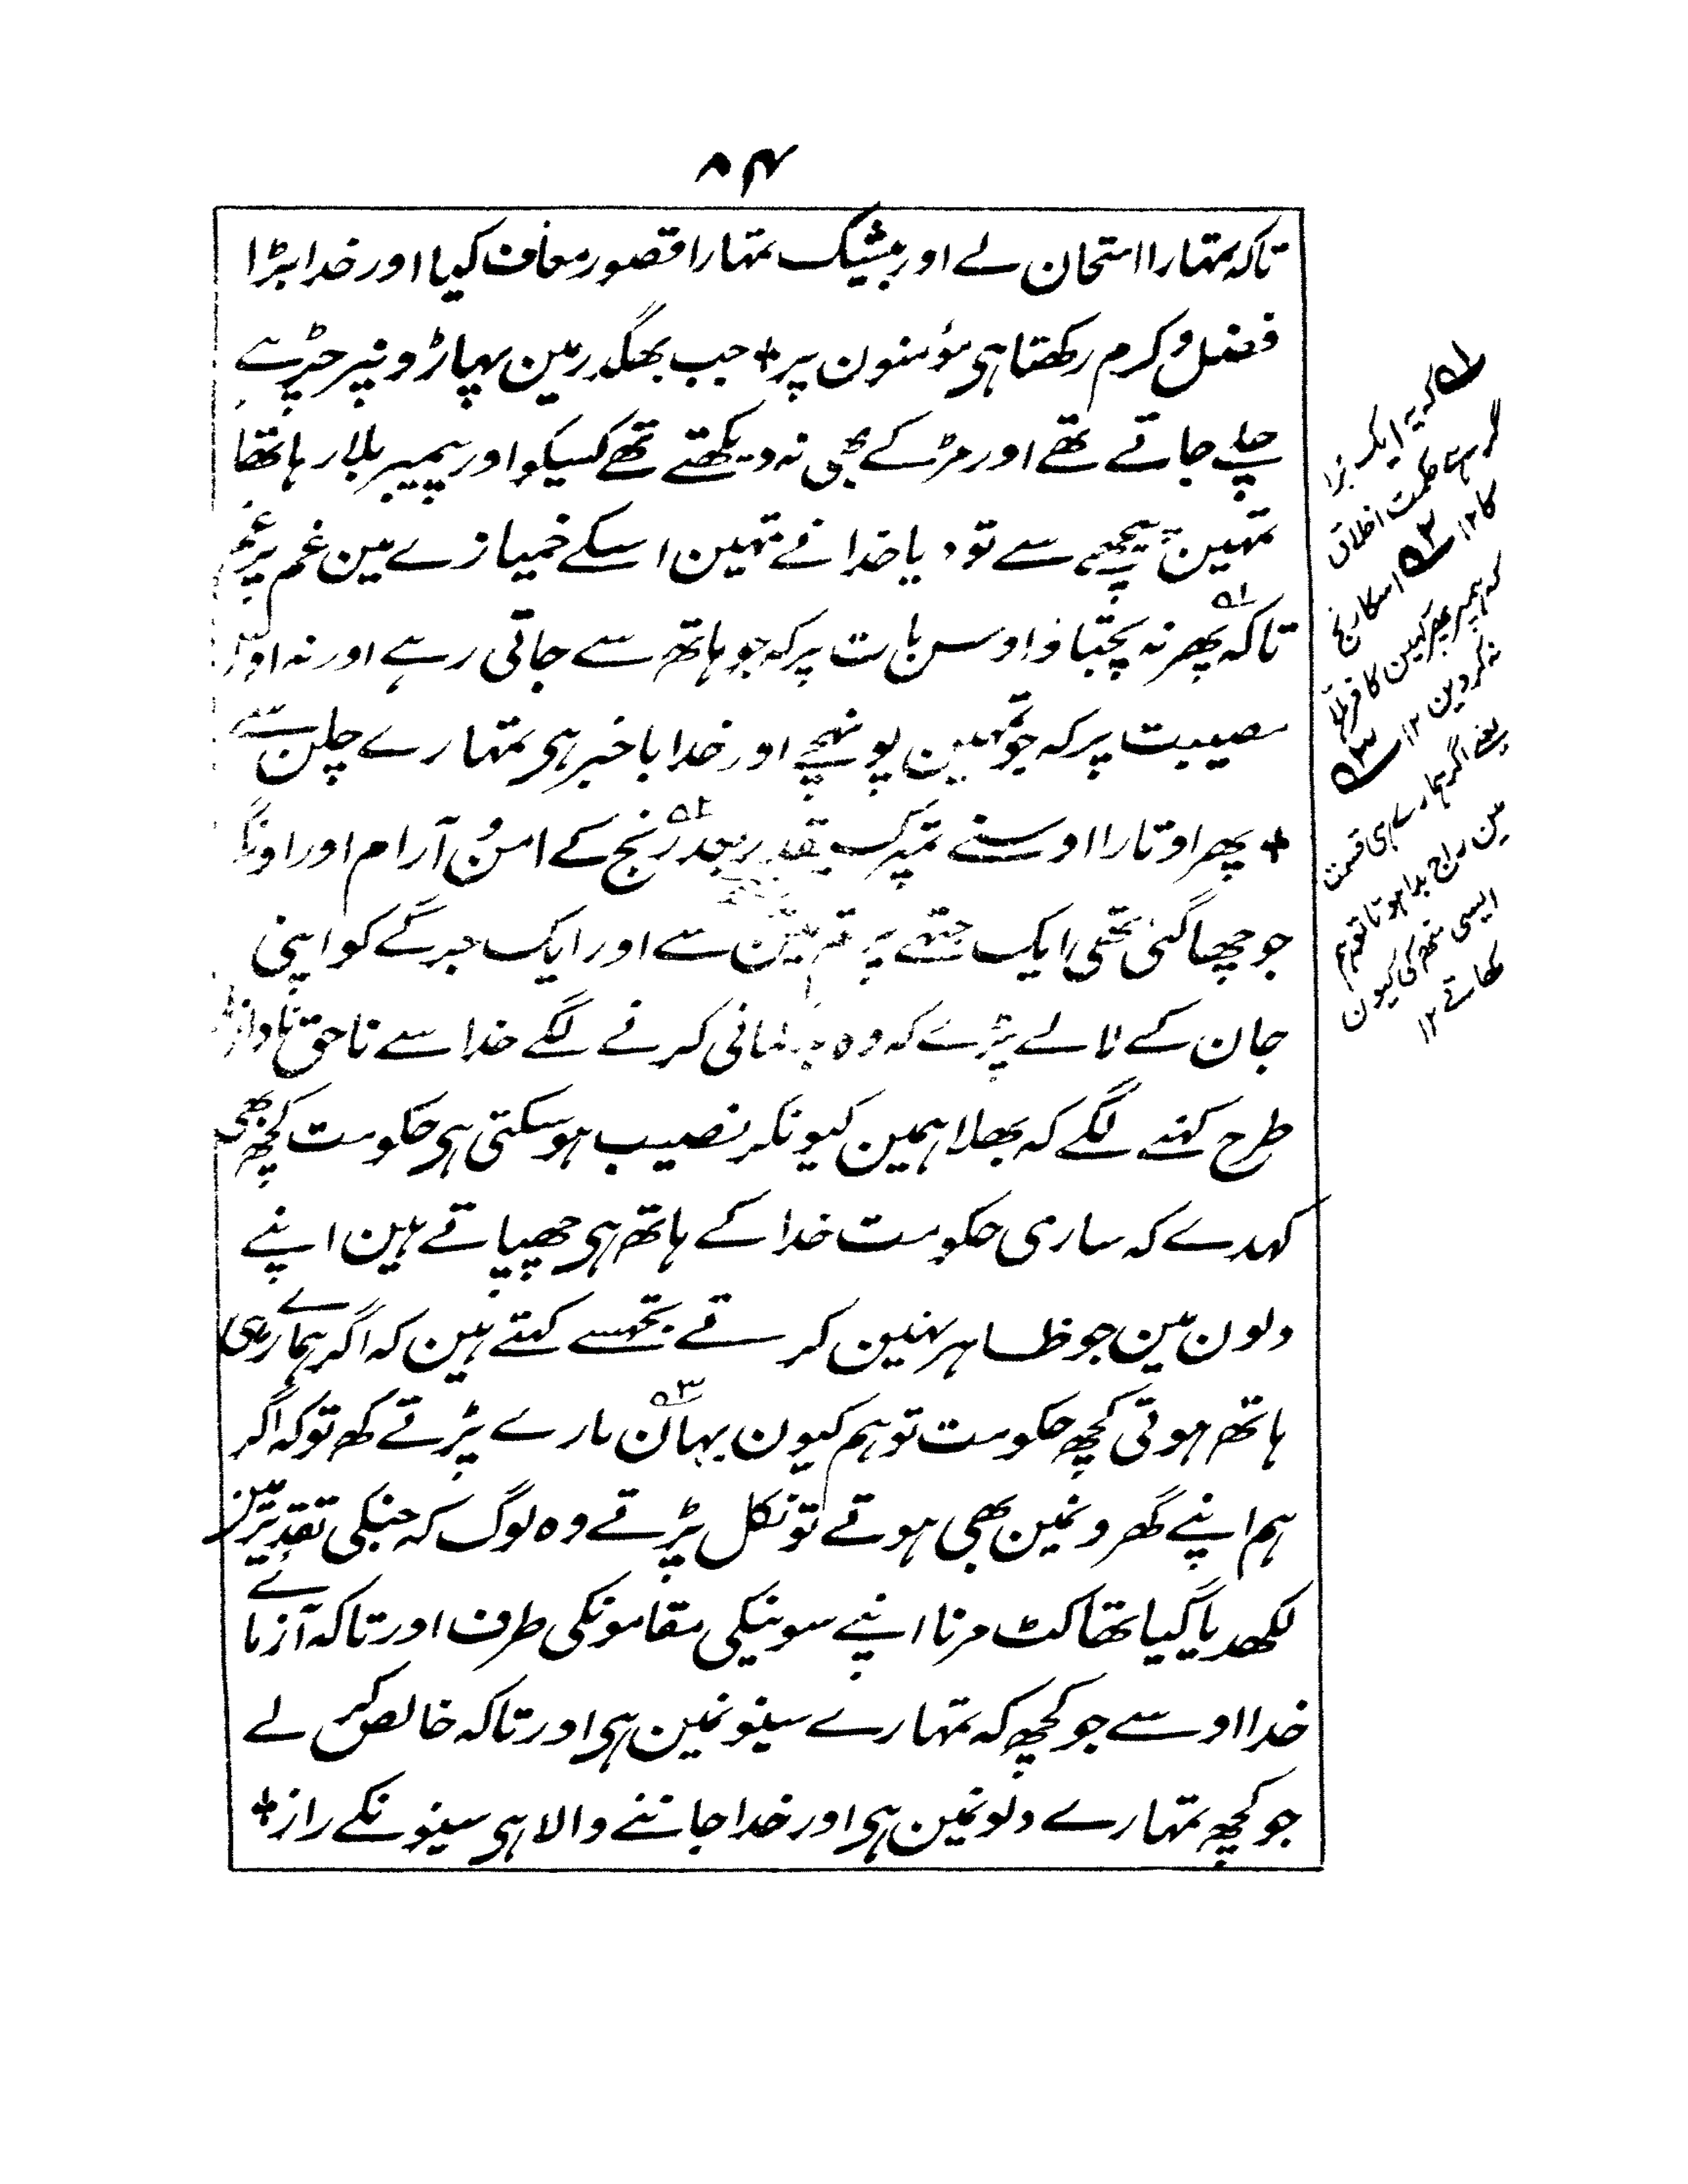 ۸۴
تاکہ تمہارا امتحان لے اور بیشک تمہارا قصور معاف کیا اور خدا بڑا
فضل و کرم رکھتا ہی مؤمنون پر + جب بھگدر مین پہاڑونپر چڑہے
چلے جاتے تھے اور مڑ کے بھی نہ دیکھتے تھے کسیکو اور پیمبر بلا رہا تھا
تمہین پیچھے سے تو دیا خدا نے تمہین اسکے خمیازے مین غم پر غم
تاکہ پھر نہ پچتاؤ اوس بات پر کہ جو ہاتھ سے جاتی رہے اور نہ اوس
مصیبت پر کہ جو تمہین پونہچے اور خدا باخبر ہی تمہارے چلن سے
+ پھر اوتارا اوسنے تمپر کسیقدر بعد رنج کے امن آرام اور اونگ
جو چھا گئی تھی ایک جتھے پر تم مین سے اور ایک جرگے کو اپنی
جان کے لالے پڑے کہ وہ بدگمانی کرنے لگے خدا سے ناحق نادانو
طرح کہنے لگے کہ بھلا ہمین کیونکر نصیب ہو سکتی ہی حکومت کچھ بھی
کہدے کہ ساری حکومت خدا کے ہاتھ ہی چھپاتے ہین اپنے
دلون مین جو ظاہر نہین کرتے تجھسے کہتے ہین کہ اگر ہمارے ہی
ہاتھ ہوتی کچھ حکومت تو ہم کیون یہان مارے پڑتے کھ تو کہ اگر
ہم اپنے گھرونمین بھی ہوتے تو نکل پڑتے وہ لوگ کہ جنکی تقدیر مین
لکھدیا گیا تھا کٹ مرنا اپنے سونیکی مقامونکی طرف اور تاکہ آزمائے
خدا اوسے جو کچھ کہ تمہارے سینونمین ہی اور تاکہ خالص کر لے
جو کچھ تمہارے دلونمین ہی اور خدا جاننے والا ہی سینونکے راز +
۱؎ کہ یہ ایک بڑا
گر ہے حکمت اخلاق
کا ۱۲ ۲؎ اسکا رنج
کہ ہمپر پھر کہین کافر ہلہ
نہ کر دین ۱۲ ۳؎
یعنے اگر ہمارے ہی قسمت
مین راج بدا ہوتا تو ہم
ایسی منھ کی کیون
کھاتے ۱۲